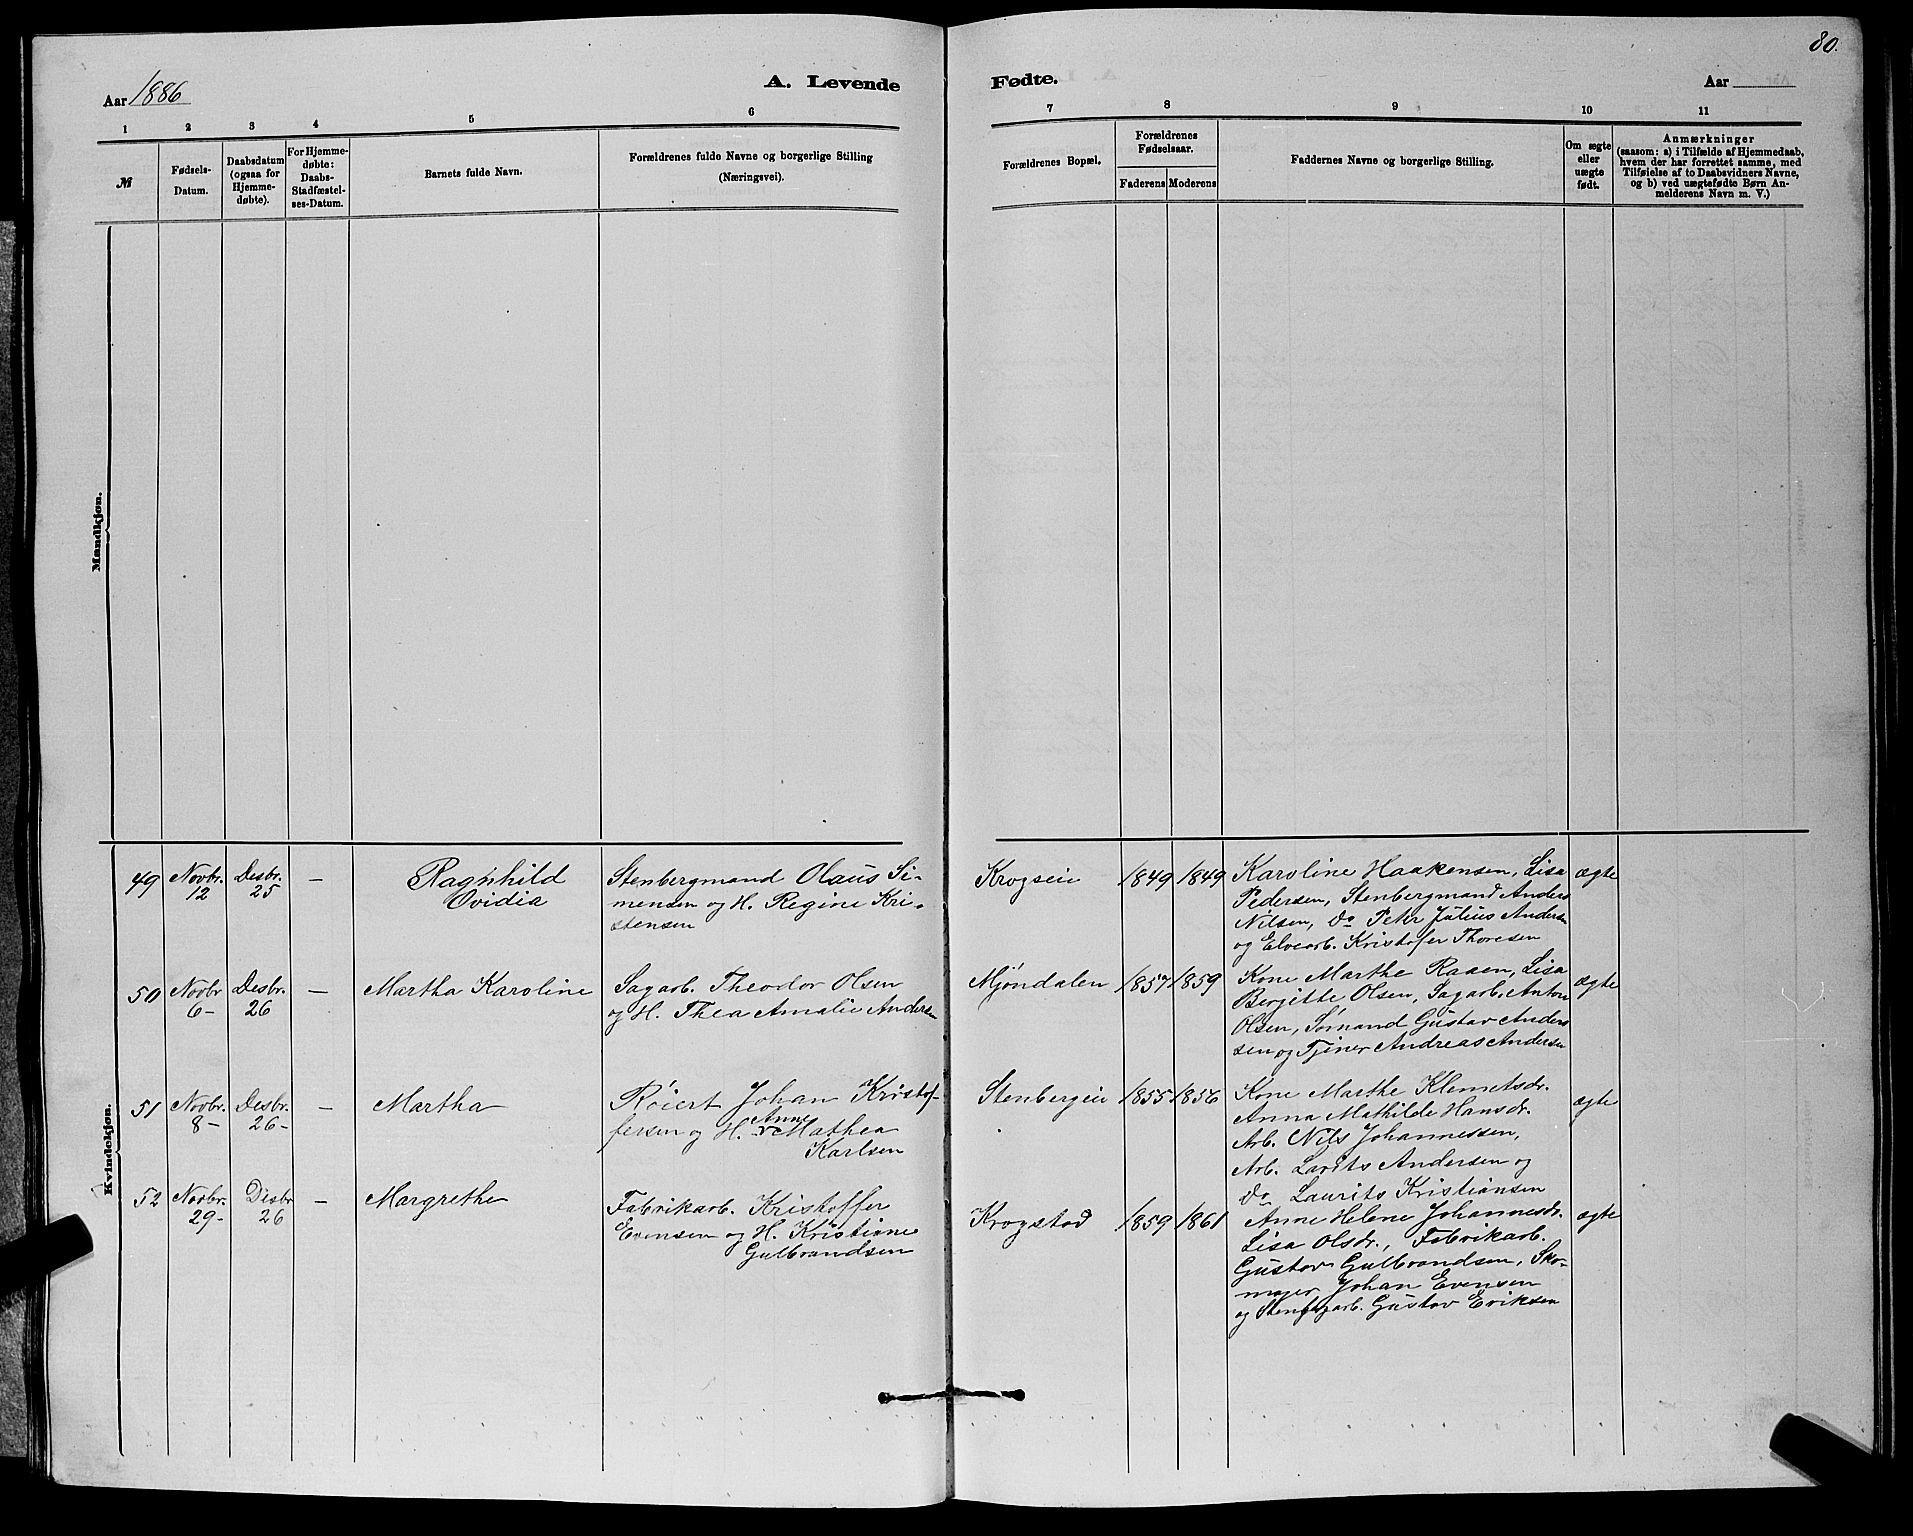 80.
Aar 1886
A. Levende
Fødte.
Aar
1 2 3 4 5 6
7 8 9 10 11
№
Fødsels-
Datum.
Daabsdatum
(ogsaa for
Hjemme-
døbte).
For Hjemme-
døbte:
Daabs-
Stadfæstel-
ses-Datum.
Barnets fulde Navn.
Forældrenes fulde Navne og borgerlige Stilling
(Næringsvei).
Forældrenes Bopæl.
Forældrenes
Fødselsaar.
Faderens Moderens
Faddernes Navne og borgerlige Stilling.
Om ægte
eller
uægte
født.
Anmærkninger
(saasom: a) i Tilfælde af Hjemmedaab,
hvem der har forrettet samme, med
Tilføielse af to Daabsvidners Navne,
og b) ved uægtefødte Børn An-
melderens Navn m. V.)
Mandkjøn.
Kvindekjøn.
49
Novbr.
12
Desbr.
25
—
Ragnhild
Ovidia
Stenbergmand Olaus Si-
mensen og H. Regine Kri-
stensen
Krogseie
1849 1849
Karoline Haakensen, Lisa
Pedersen, Stenbergmand Anders
Nilsen, do Petr Julius Andersen
og Elvearb. Kristofer Thoresen
ægte
50
Novbr
6-
Desbr.
26
—
Martha Karoline
Sagarb. Theodor Olsen
og H. Thea Amalie Andersen
Mjøndalen
1857 1859
Kone Marthe Raaen, Lisa
Bergitte Olsen, Sagarb. Anton
Olsen, Sømand Gustav Anders
sen og Tjener Andreas Andersen
ægte
51
Novbr.
8-
Desbr.
26-
—
Martha
Røiert Johan Kristof-
fersen og H. Anne Mathea
Karlsen
Stenbergeie
1855 1856
Kone Marthe Klemetsdr.
Anna Mathilde Hansdr.
Arb. Nils Johannessen,
Arb. Larits Andersen og
do Laurits Kristiansen
ægte
52
Novbr.
29-
Desbr
26
—
Margrethe
Fabrikarb. Kristoffer
Evensen og H. Kristiane
Gulbrandsen
Krogstad
1859 1861
Anne Helene Johannesdr.
Lisa Olsdr., Fabrikarb.
Gustav Gulbrandsen, Sko-
mager Johan Evensen
og Stenbergarb. Gustav Eriksen
ægte